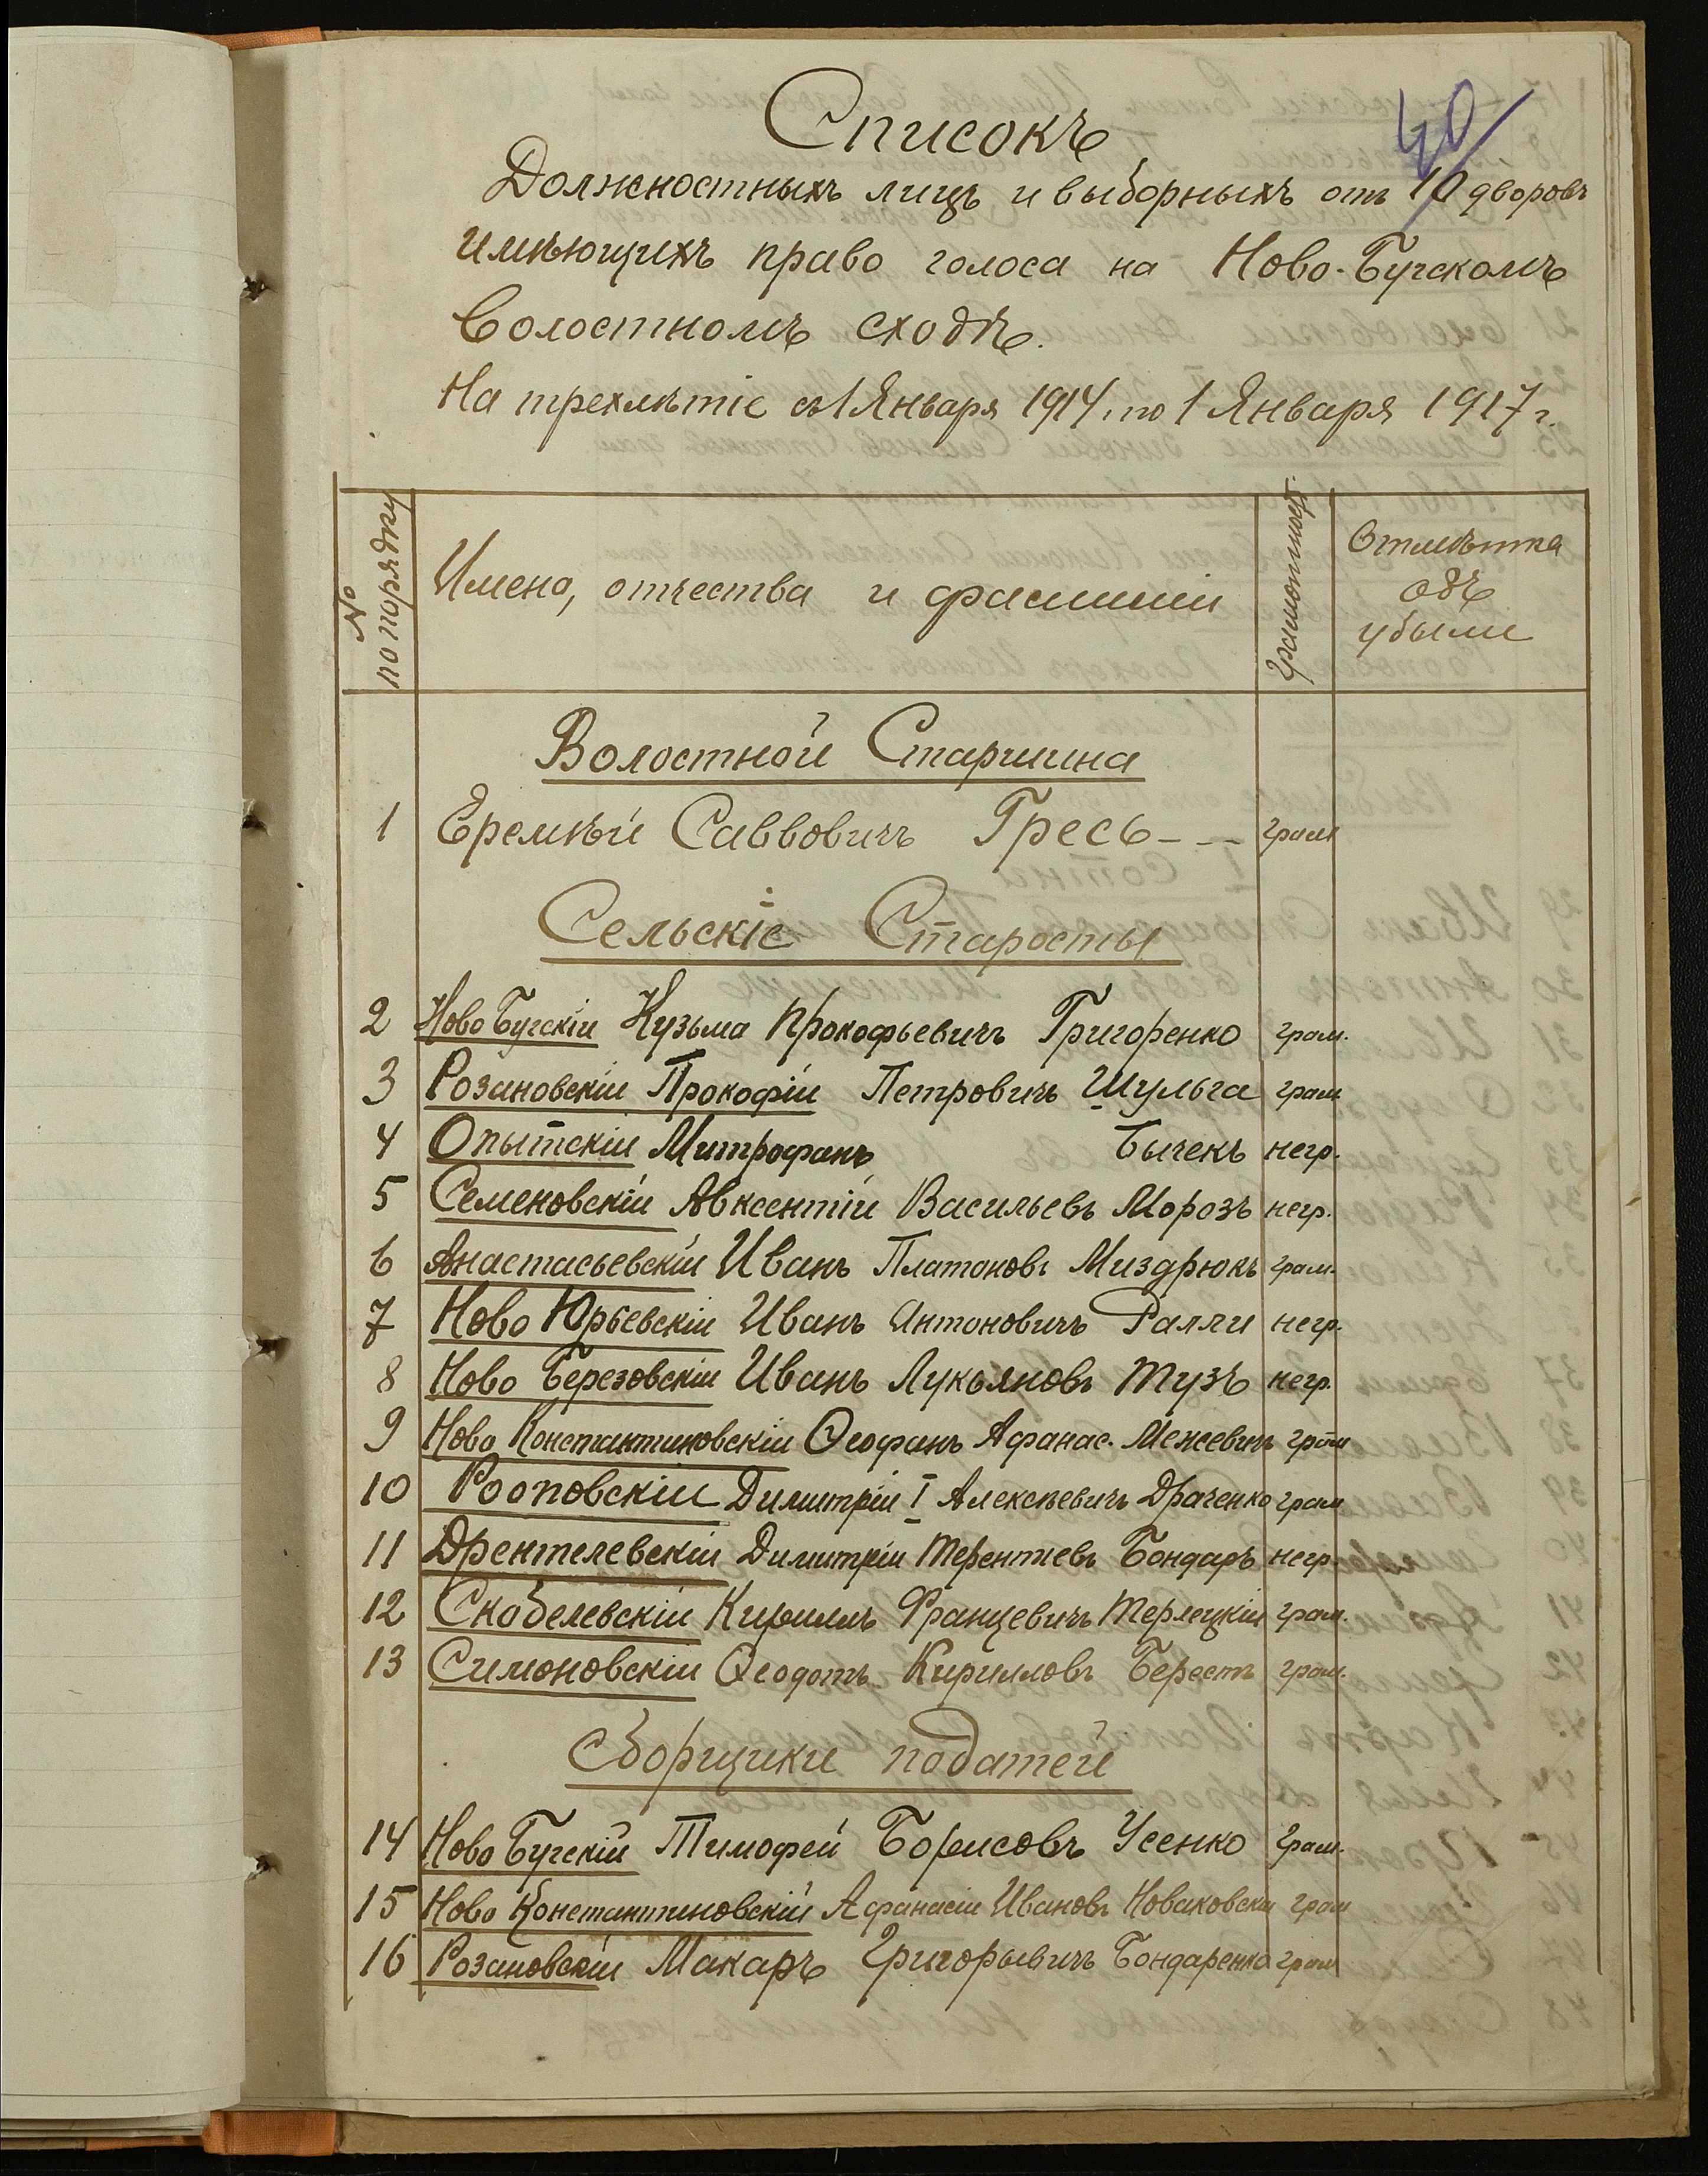 40
Списокъ
Должностныхъ лицъ и выборныхъ отъ 10 дворовъ
имѣющихъ право голоса на Ново-Бугскомъ
Волостномъ сходѣ.
На трехлѣтіе съ 1 Января 1914, по 1 Января 1917 г.
№ по порядку Имена, отчества и фамиліи Грамотность Отмѣтка
объ
убыли
Волостной Старшина
1 Еремѣй Саввовичъ Гресь - - грам
Сельскіе Старосты
2 Ново Бугскій Кузьма Прокофьевичъ Григоренко грам.
3 Розановскій Прокофій Петровичъ Шульга грам
4 Опытскій Митрофанъ Бычекъ негр.
5 Семеновскій Авксентій Васильевъ Морозъ негр.
6 Анастасьевскій Иванъ Платоновъ Миздрюкъ грам.
7 Ново Юрьевскій Иванъ Антоновичъ Ралли негр.
8 Ново Березовскій Иванъ Лукьяновъ Тузъ негр.
9 Ново Константиновскій Ѳеофанъ Афанас. Межевичъ грам
10 Рооповскій Димитрій I Алексѣевичъ Драченко грам
11 Дрентелевскій Димитрій Терентіевъ Бондаръ негр.
12 Скобелевскій Кириллъ Францевичъ Терлецкій грам.
13 Симоновскій Ѳеодотъ Кирилловъ Берестъ грам.
Сборщики податей
14 Ново Бугскій Тимофей Борисовъ Усенко грам.
15 Ново Константиновскій Афанасій Ивановъ Новаковскій грам
16 Розановскій Макаръ Григорьевичъ Бондаренко грам